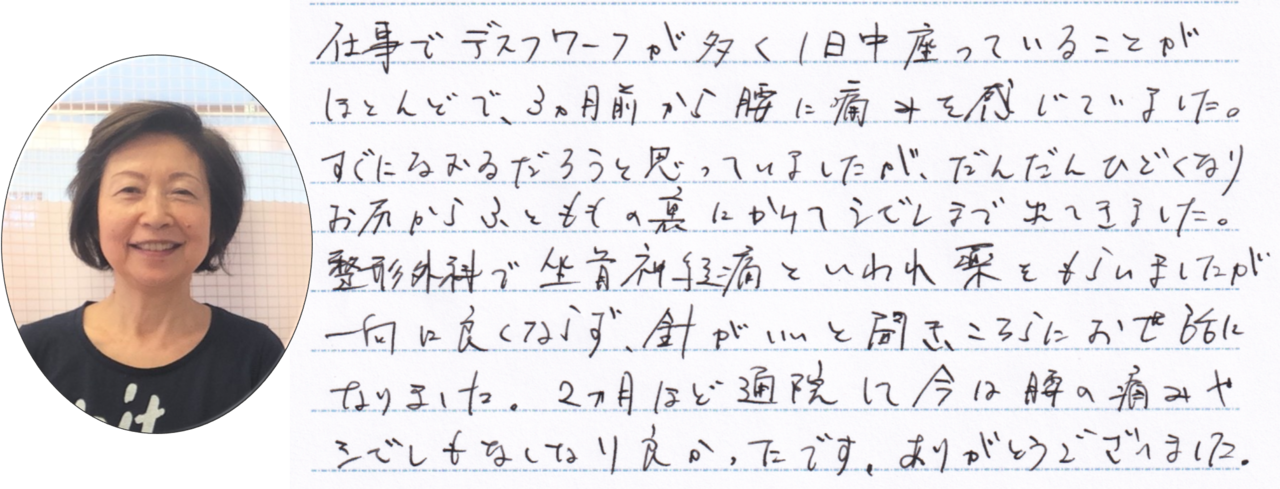 仕事でデスクワークが多く1日中座っていることが
ほとんどで、3ヵ月前から腰に痛みを感じていました。
すぐになおるだろうと思っていましたが、だんだんひどくなり
お尻からふとももの裏にかけてシビレまで出てきました。
整形外科で坐骨神経痛といわれ薬をもらいましたが
一向に良くならず、針がいいと聞き、こちらにお世話に
なりました。2ヵ月ほど通院して今は腰の痛みや
シビレもなくなり良かったです。ありがとうございました。
it